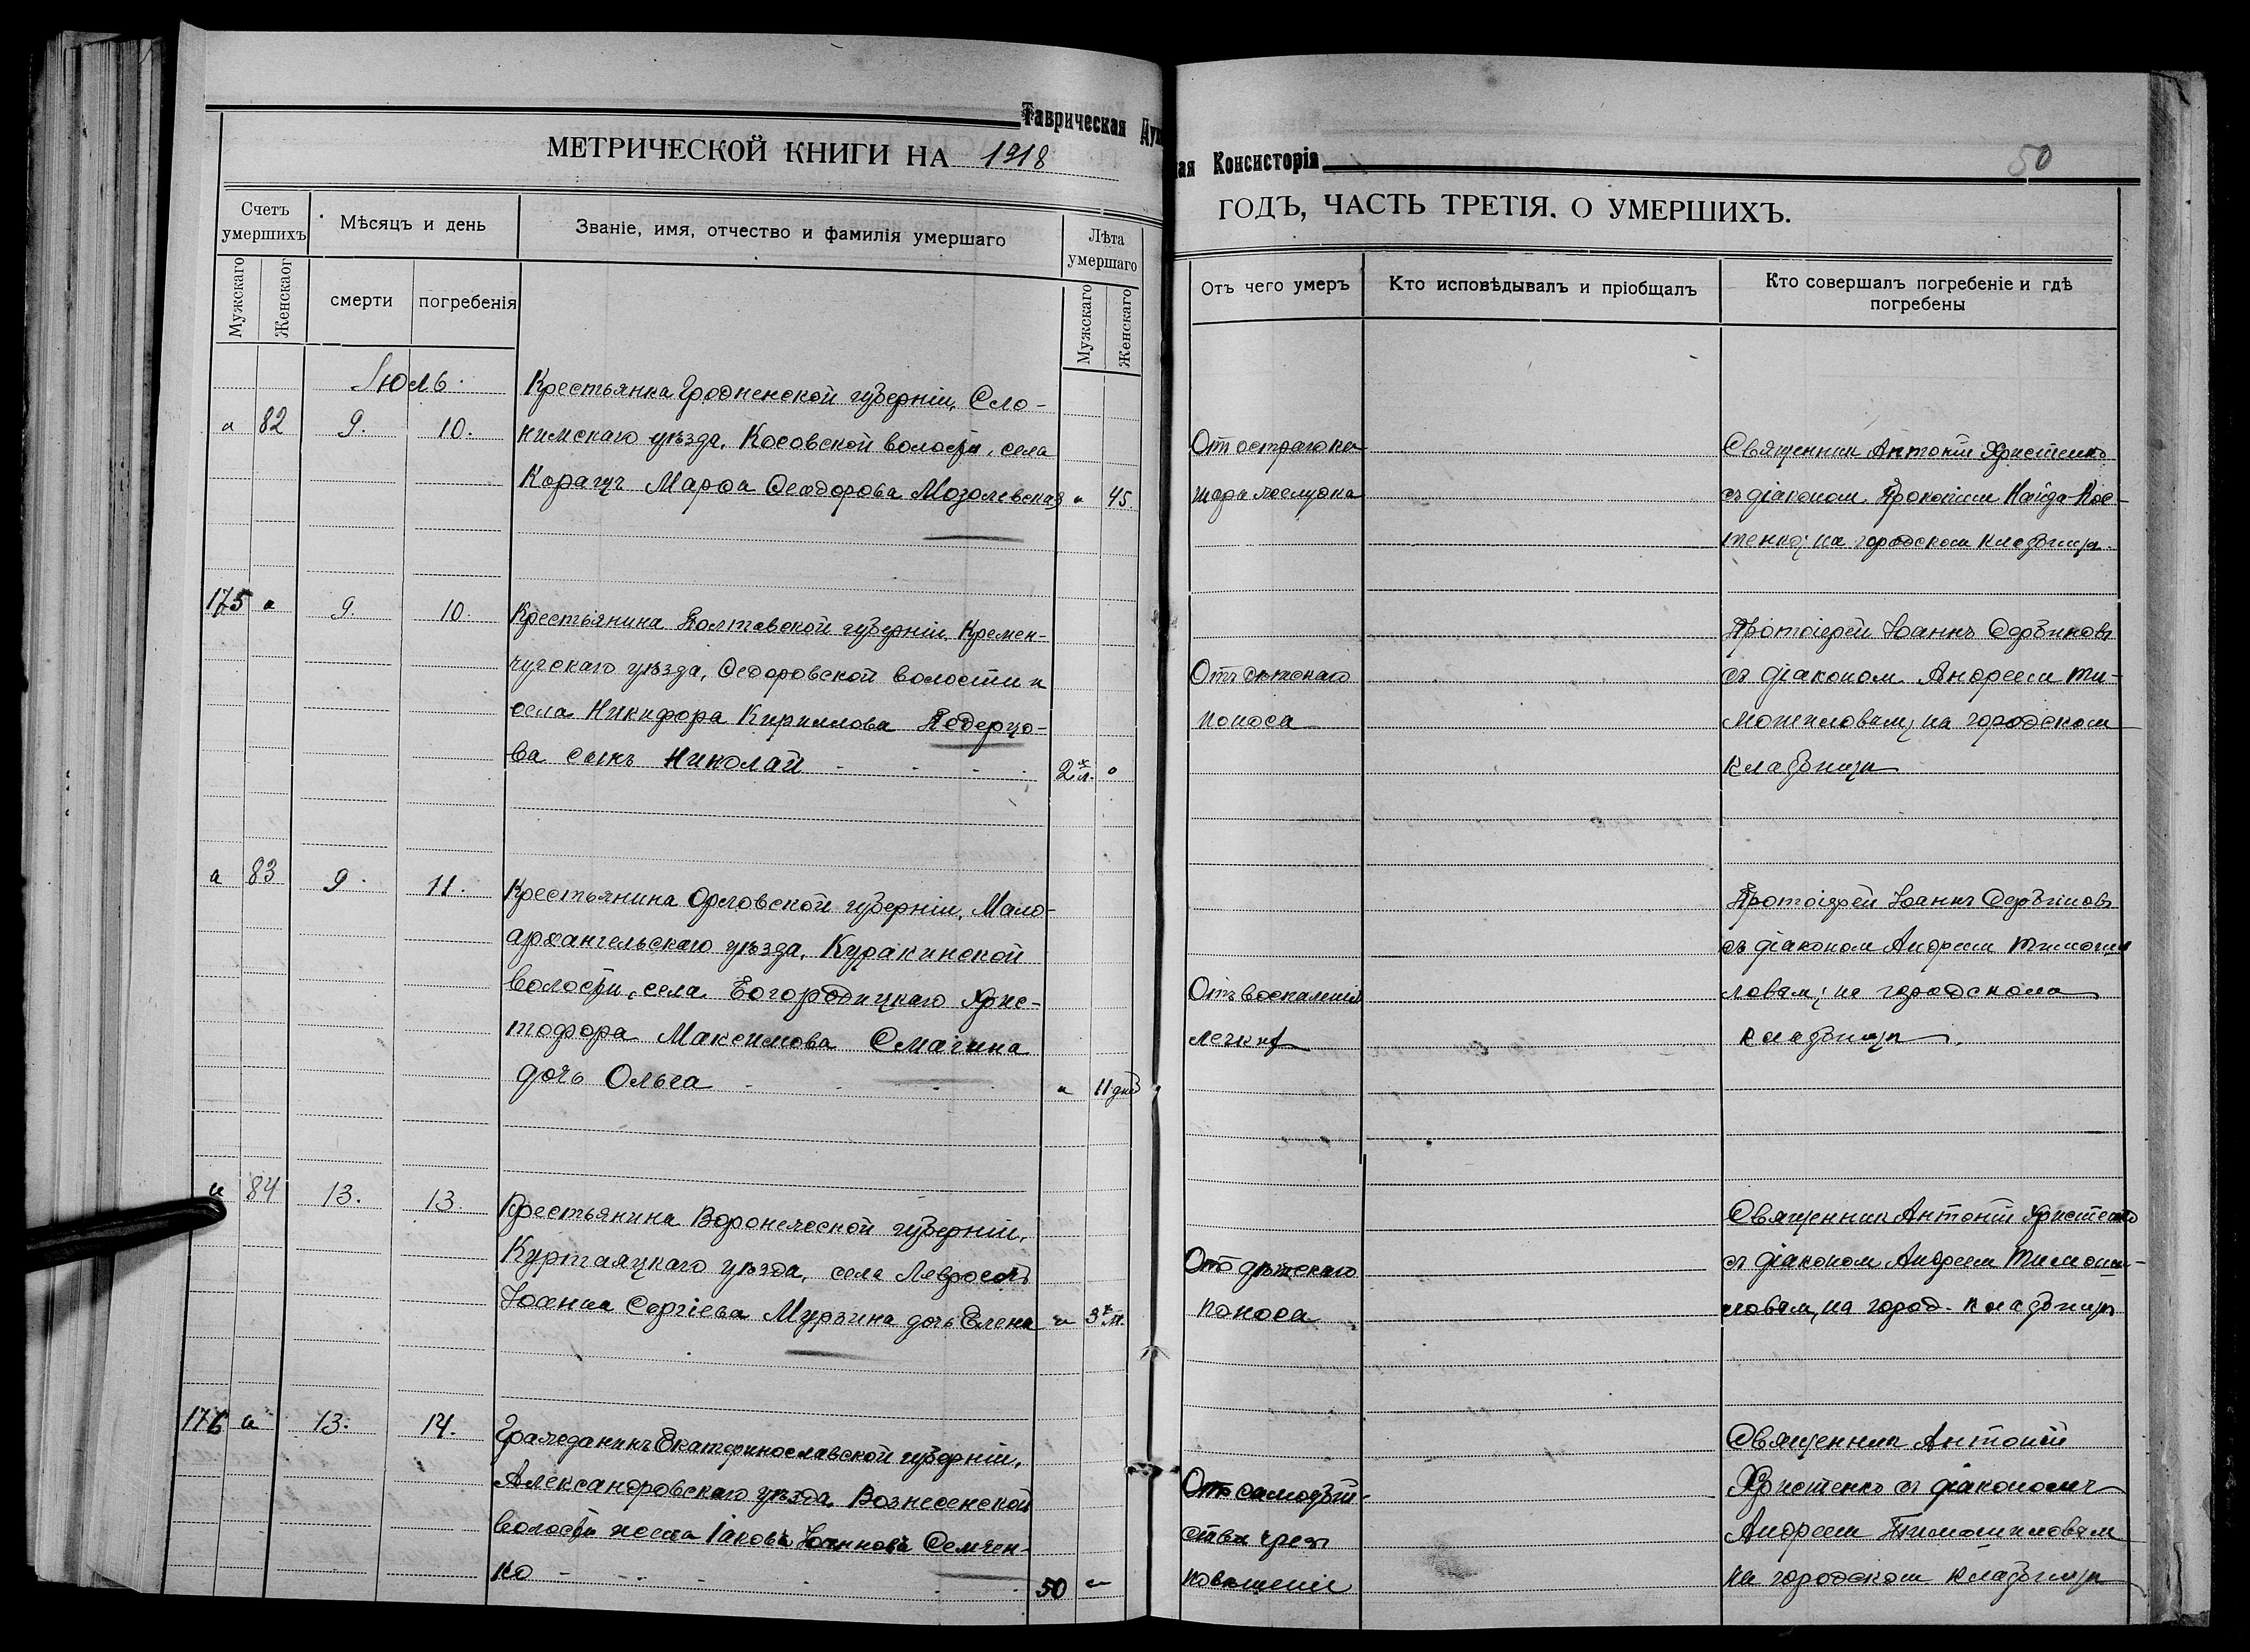 Таврическая Дух
ая Консисторія
50
МЕТРИЧЕСКОЙ КНИГИ НА 1918
ГОДЪ, ЧАСТЬ ТРЕТІЯ. О УМЕРШИХЪ.
Счетъ умершихъ
Мужскаго
Женскаог
Мѣсяцъ и день
смерти
погребенія
Званіе, имя, отчество и фамилія умершаго
Лѣта умершаго
Мужскаго
Женскаго
Отъ чего умеръ
Кто исповѣдывалъ и пріобщалъ
Кто совершалъ погребеніе и гдѣ
погребены
Іюль.
Крестьянка Гродненской губерніи, Сло-
„ 82 9. 10. нимскаго уѣзда, Косовской волости, села
Марѳа Ѳеодорова Мозолевская „ 45.
От остраго ка-
тара желудка
Священник Антоній Христенко
съ діаконом Прокопіем Кайда-Кос-
тенко; на городском кладбищѣ.
175 „ 9. 10. Крестьянина Полтавской губерніи, Кремен-
чугскаго уѣзда, Ѳедоровской волости и
села Никифора Кириллова
ва сынъ Николай 2 м. „
Отъ дѣтскаго
поноса
Протоіерей Іоаннъ Сербиновъ
съ діаконом Андреем Ти-
мошиловым; на городском
кладбищѣ
„ 83 9. 11. Крестьянина Орловской губерніи, Мало-
архангельскаго уѣзда, Куракинской
волости, села Богородицкаго Хрис-
тофора Максимова Смагина
дочь Ольга „ 11 дней
Отъ воспаленія
легких
Протоіерей Іоаннъ Сербиновъ
съ діаконом Андреем Тимоши
ловым; на городском
кладбищѣ.
„ 84 13. 13 Крестьянина Воронежской губерніи,
уѣзда, села
Іоанна Сергіева Мурзина дочь Елена „ 3 м.
От дѣтскаго
поноса
Священник Антоній Христенко
съ діаконом Андреем Тимоши-
ловым, на город. кладбищѣ
176 „ 13. 14. Гражданинъ Екатеринославской губерніи,
Александровскаго уѣзда, Вознесенской
волости и села Іаковъ Іоанновъ Семчен-
ко 50 „
От самоубій-
ства чрез
повѣшеніе
Священник Антоній
Христенко съ діакономъ
Андреем Тимошиловым
на городском кладбищѣ